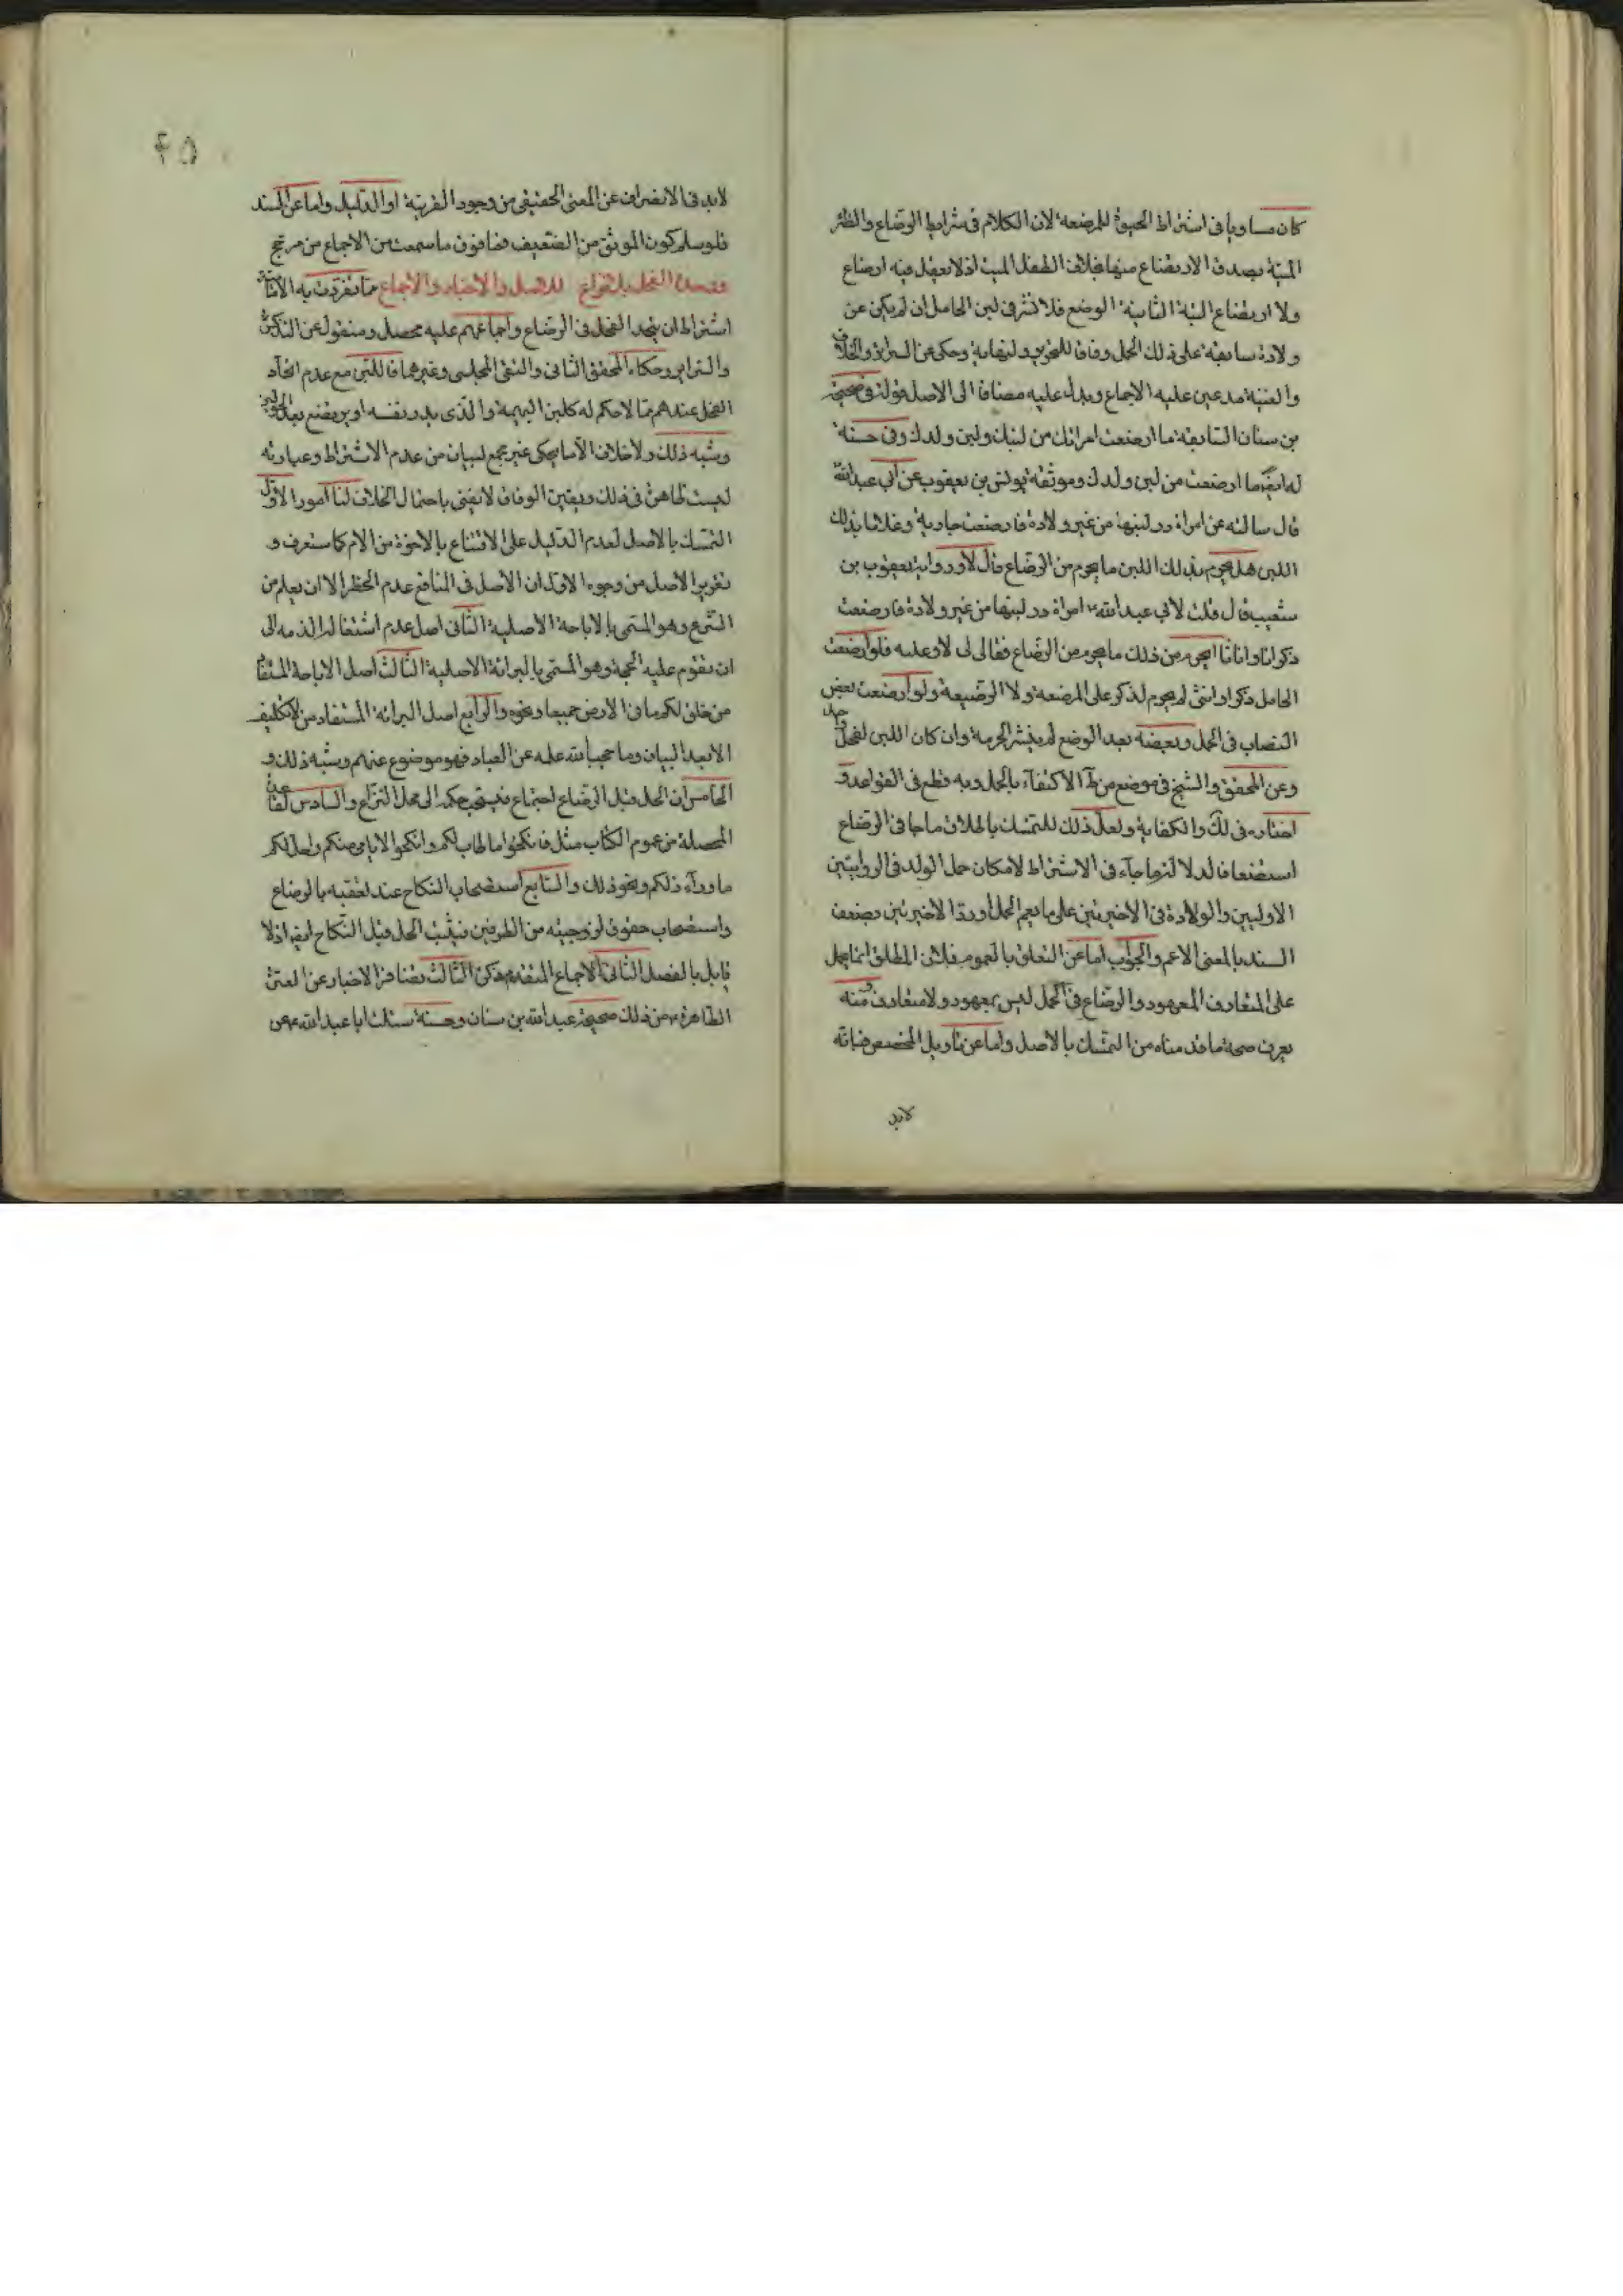 كان مساويا في اشتراط الحيوة للمرضعة لان الكلام في شرايط الرضاع والظئر
الميتة يصدق الارتضاع منها بخلاف الطفل الميت اذ لا يعقل فيه ارضاع
ولا ارتضاع البتة الثانية الوضع فلا تنشر في لبن الحامل ان لم يكن عن
ولادة سابقة على ذلك الحمل وفاقا للتحرير والنهاية وحكى عن السرائر والخلاف
والغنية مدعين عليه الاجماع ويدل عليه مضافا الى الاصل قوله في صحيحة
بن سنان السابقة ما ارضعت امراتك من لبنك ولبن ولدك وفي حسنة
له ايضا ما ارضعت من لبن ولدك وموثقة يونس بن يعقوب عن ابي عبد الله
قال سالته عن امراة در لبنها من غير ولادة فارضعت جارية وغلاما بذلك
اللبن هل يحرم بذلك اللبن ما يحرم من الرضاع قال لا ورواية يعقوب بن
شعيب قال قلت لابي عبد الله امراة در لبنها من غير ولادة فارضعت
ذكرانا واناثا ايحرم من ذلك ما يحرم من الرضاع فقال لي لا وعليه فلو ارضعت
الحامل ذكرا او انثى لم يحرم لذكر على المرضعة ولا الرضيعة ولو ارضعت بعض
النصاب في الحمل وبعضه بعد الوضع لم ينشر الحرمة وان كان اللبن لفحل واحد
وعن المحقق والشيخ في موضع من ط الاكتفاء بالحمل وبه قطع في القواعد و
اختاره في لك والكفاية ولعل ذلك للتمسك باطلاق ما جا في الرضاع
استضعافا لدلالة ما جاء في الاشتراط لامكان حمل الولد في الروايتين
الاوليين والولادة في الاخيرتين على ما يعم الحمل او رد الاخيرتين بضعف
السند بالمعنى الاعم والجواب اما عن التعلق بالعموم فلان المطلق انما يحمل
على المتعارف المعهود والرضاع في الحمل ليس بمعهود ولا متعارف ومنه
يعرف صحة ما قدمناه من التمسك بالاصل واما عن تاويل المخصص فبانه
لابد
۴۵
لابد في الانصراف عن المعنى الحقيقي من وجود القرينة او الدليل واما عن السند
فلو سلم كون الموثق من الضعيف فما فوق ما سمعت من الاجماع من مرجح
وحدة الفحل بلا نزاع للاصل والاخبار والاجماع مما تفردت به الامامية
اشتراط ان يتحد الفحل في الرضاع واجماعهم عليه محصل ومنقول عن التذكرة
والسرائر وحكاه المحقق الثاني والتقي المجلسي وغيرهما فاللبن مع عدم اتحاد
الفحل عندهم مما لا حكم له كلبن البهيمة والذي يدر بنفسه او يرتضع بعد الحولين
وشبه ذلك ولا خلاف الا ما يحكى عن مجمع البيان من عدم الاشتراط وعبارته
ليست ظاهرة في ذلك ويقين الوفاق لا ينفى باحتمال الخلاف لنا امور الاول
التمسك بالاصل لعدم الدليل على الامتناع بالاخوة من الام كما ستعرف و
تقرير الاصل من وجوه الاول ان الاصل في المنافع عدم الحظر الا ان يعلم من
الشرع وهو المسمى بالاباحة الاصلية الثاني اصل عدم اشتغال الذمة الى
ان تقوم عليه الحجة وهو المسمى بالبرائة الاصلية الثالث اصل الاباحة
من خلق لكم ما في الارض جميعا ونحوه والرابع اصل البرائة المستفاد من لا تكليف
الا بعد البيان وما حجب الله علمه عن العباد فهو موضوع عنهم وشبه ذلك و
الخامس ان الحل قبل الرضاع اجماع فيستصحب حكمه الى محل النزاع والسادس
المحصلة من عموم الكتاب مثل فانكحوا ما طاب لكم وانكحوا الايامى منكم واحل لكم
ما وراء ذلكم ونحو ذلك والسابع استصحاب النكاح عند تعقبه بالرضاع
واستصحاب حقوق الزوجية من الطرفين فيثبت الحل قبل النكاح ايضا اذ لا
قايل بالفصل الثاني الاجماع المتقدم ذكره الثالث تضافر الاخبار عن العترة
الطاهرة فمن ذلك صحيحة عبد الله بن سنان وحسنة سئلت ابا عبد الله عن